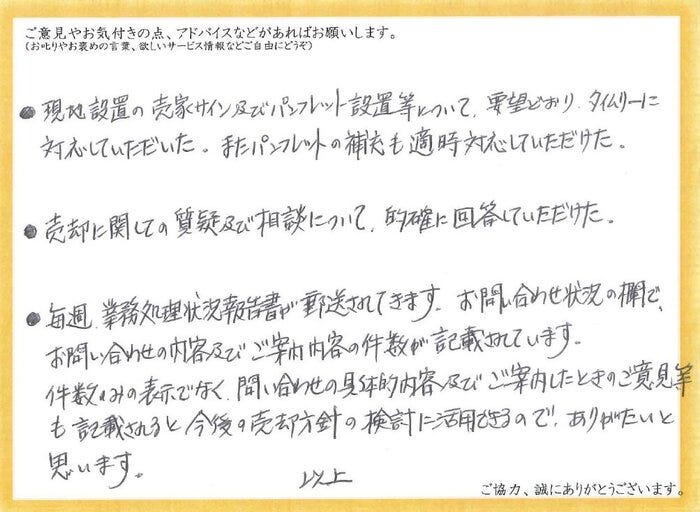 ご意見やお気付きの点、アドバイスなどがあればお願いします。
(お叱りやお褒めの言葉、欲しいサービス情報などご自由にどうぞ)
● 現地設置の売家サイン及びパンフレット設置等について、要望どおり、タイムリーに
対応していただいた。またパンフレットの補充も適時対応していただけた。
● 売却に関しての質疑及び相談について、的確に回答していただけた。
● 毎週、業務処理状況報告書が郵送されてきます。お問い合わせ状況の欄で、
お問い合わせの内容及びご案内内容の件数が記載されています。
件数のみの表示でなく、問い合わせの具体的内容及びご案内したときのご意見等
も記載されると今後の売却方針の検討に活用できるので、ありがたいと
思います。
以上
ご協力、誠にありがとうございます。